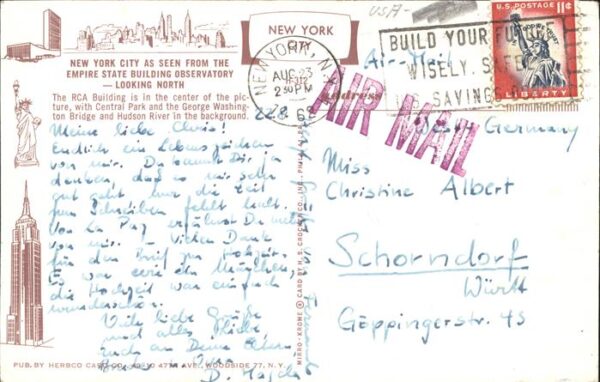 NEW YORK CITY AS SEEN FROM THE
EMPIRE STATE BUILDING OBSERVATORY
— LOOKING NORTH
The RCA Building is in the center of the pic-
ture, with Central Park and the George Washing-
ton Bridge and Hudson River in the background.
22.8.62
Meine liebe Chris!
Endlich ein Lebenszeichen
von mir. Du kannst Dir ja
denken, daß es mir sehr
gut geht, nur die Zeit
zum Schreiben fehlt halt.
von mir. – Vielen Dank
für den Brief zur Hochzeit.
Es war wie ein Märchen,
die Hochzeit war einfach
wunderschön.
Viele liebe Grüße
und alles Liebe
auch an Deine Eltern
D.
PUB. BY HERBCO CARD CO. 47TH AVE. WOODSIDE 77, N.Y.
MIRRO-KROME ® CARD BY H. S. CROCKER CO., INC.
NEW YORK
CITY
NEW YORK, N.Y.
AUG 23
2 30 PM
Address
USA-
Air-Mail
AIR MAIL
BUILD YOUR FUTURE
WISELY, SAFELY
SAVINGS
U.S. POSTAGE 11¢
LIBERTY
West Germany
Miss
Christine Albert
Schorndorf
Württ
Göppingerstr. 43